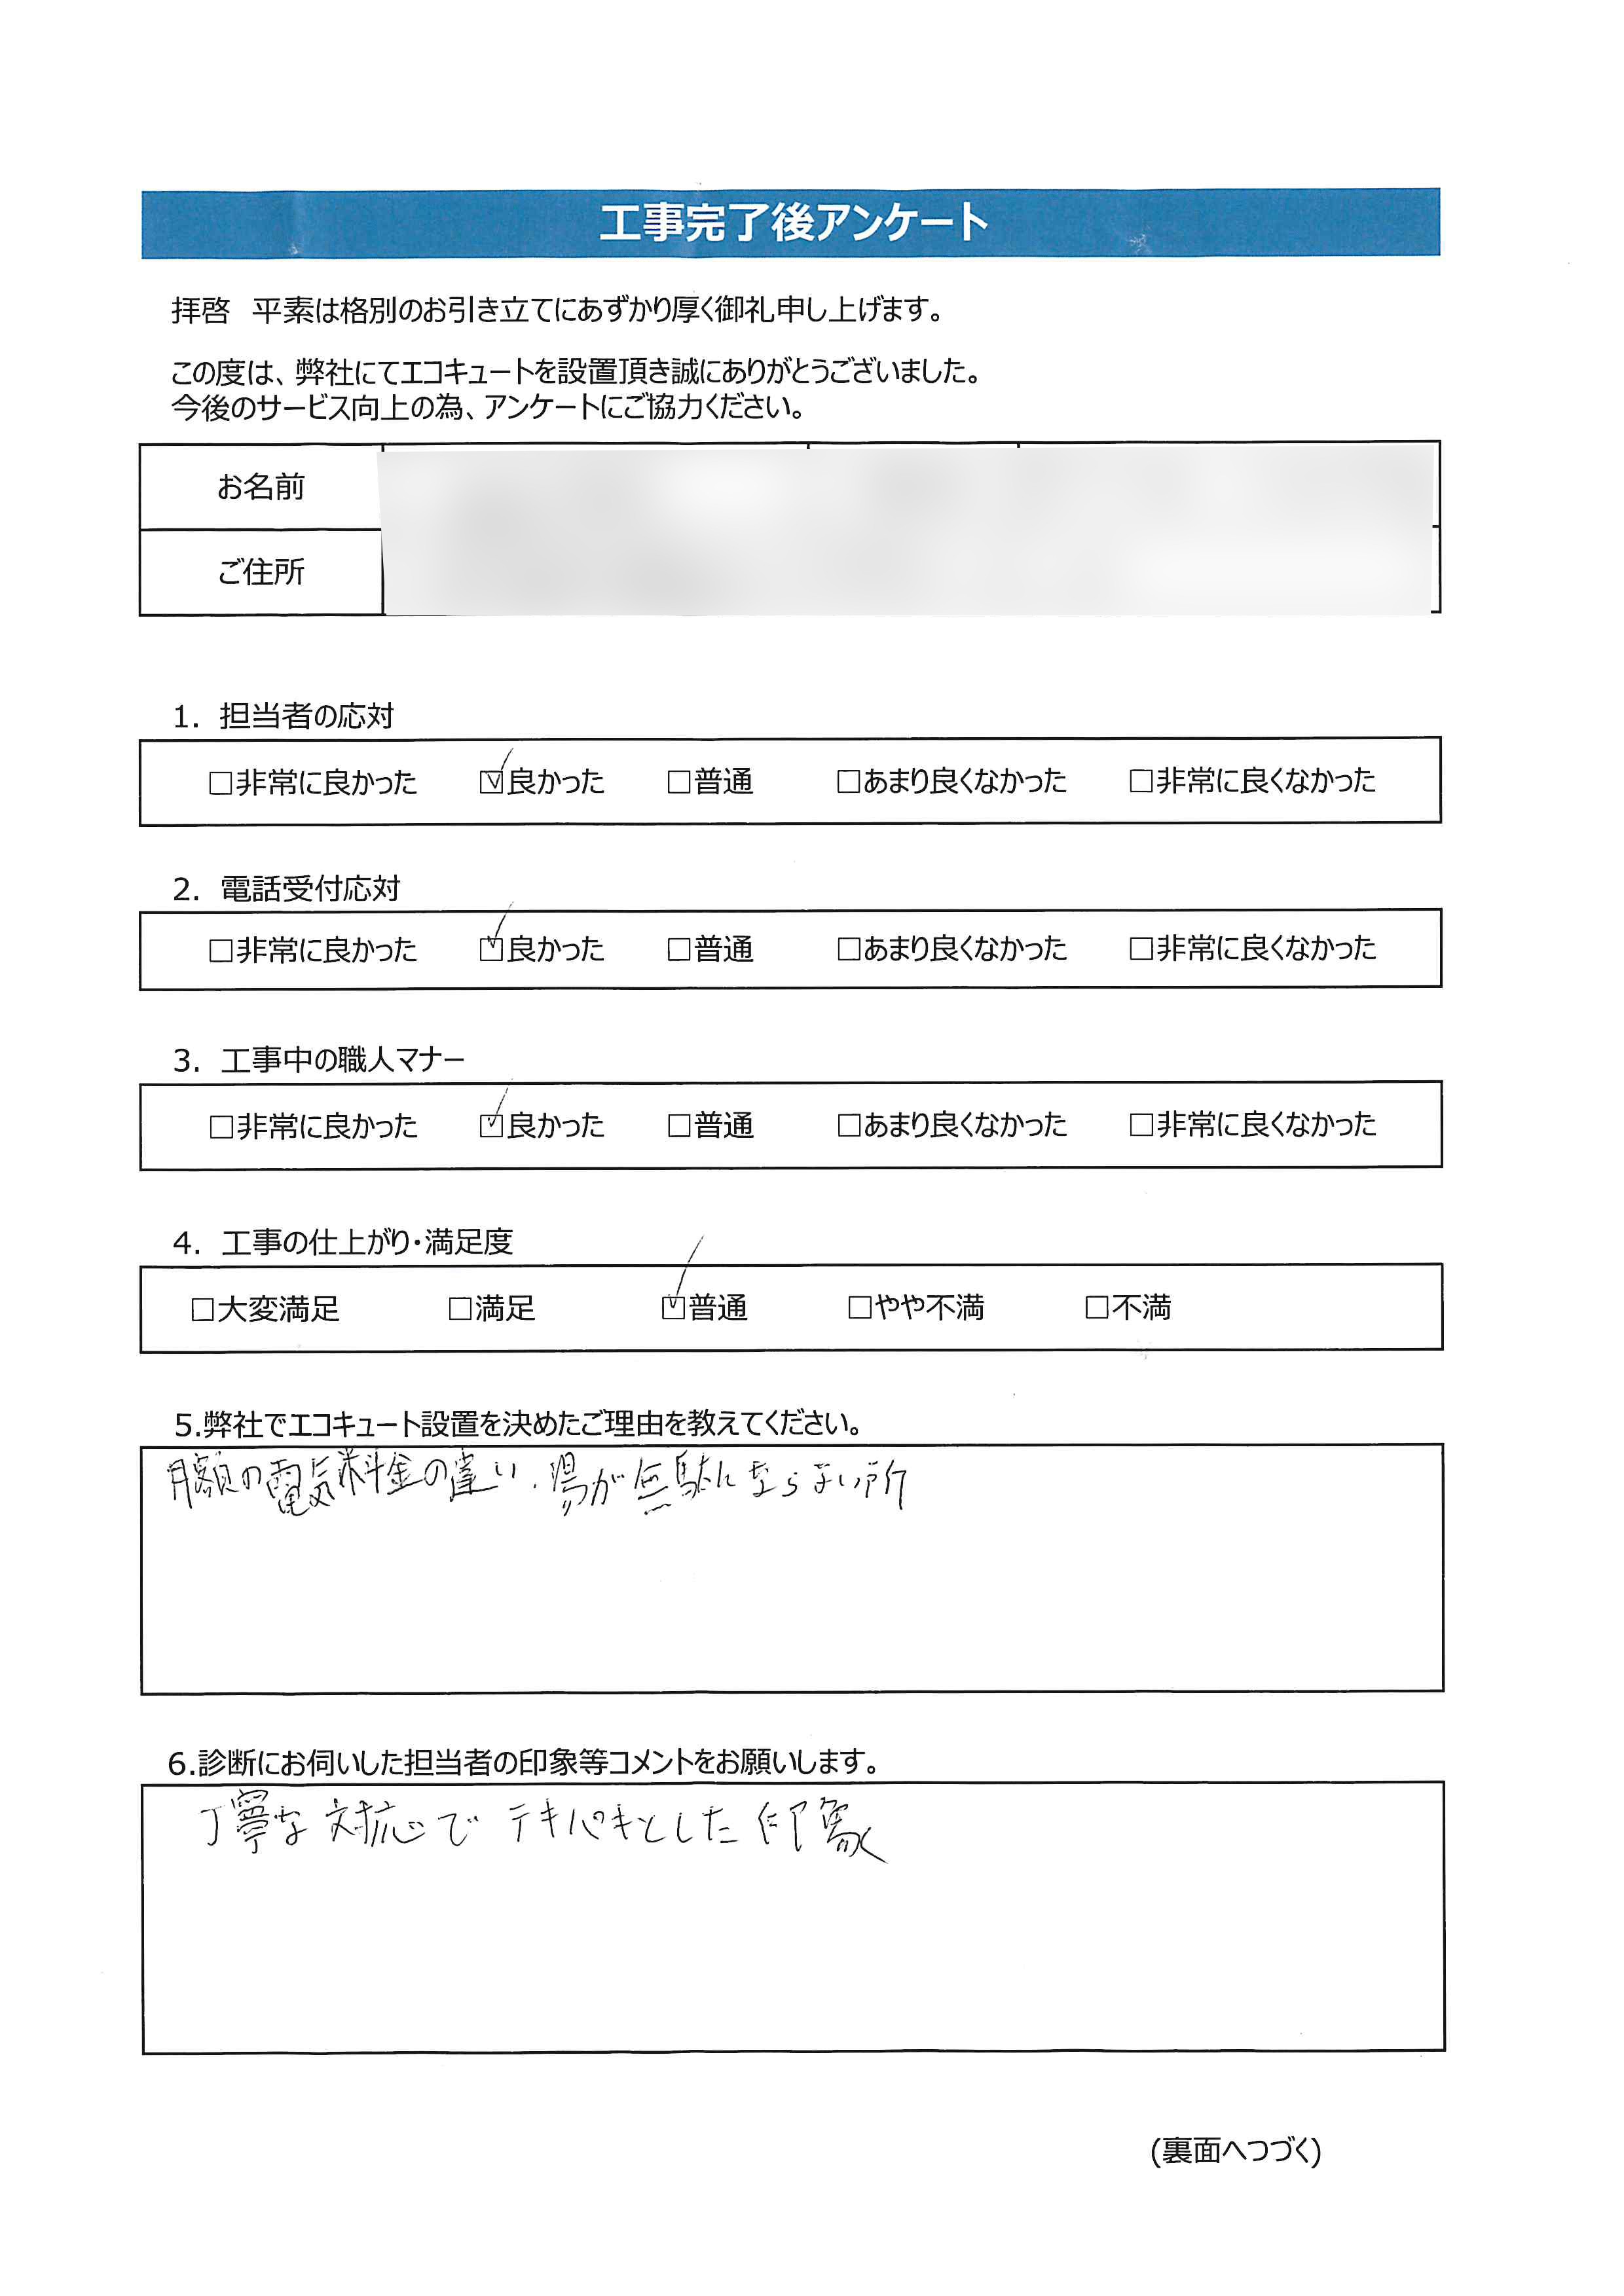 工事完了後アンケート
拝啓　平素は格別のお引き立てにあずかり厚く御礼申し上げます。
この度は、弊社にてエコキュートを設置頂き誠にありがとうございました。
今後のサービス向上の為、アンケートにご協力ください。
お名前
ご住所
1. 担当者の応対
□非常に良かった ☑良かった □普通 □あまり良くなかった □非常に良くなかった
2. 電話受付応対
□非常に良かった ☑良かった □普通 □あまり良くなかった □非常に良くなかった
3. 工事中の職人マナー
□非常に良かった ☑良かった □普通 □あまり良くなかった □非常に良くなかった
4. 工事の仕上がり・満足度
□大変満足 □満足 ☑普通 □やや不満 □不満
5.弊社でエコキュート設置を決めたご理由を教えてください。
月額の電気料金の違い、湯が無駄にならない所
6.診断にお伺いした担当者の印象等コメントをお願いします。
丁寧な対応でテキパキとした印象
(裏面へつづく)